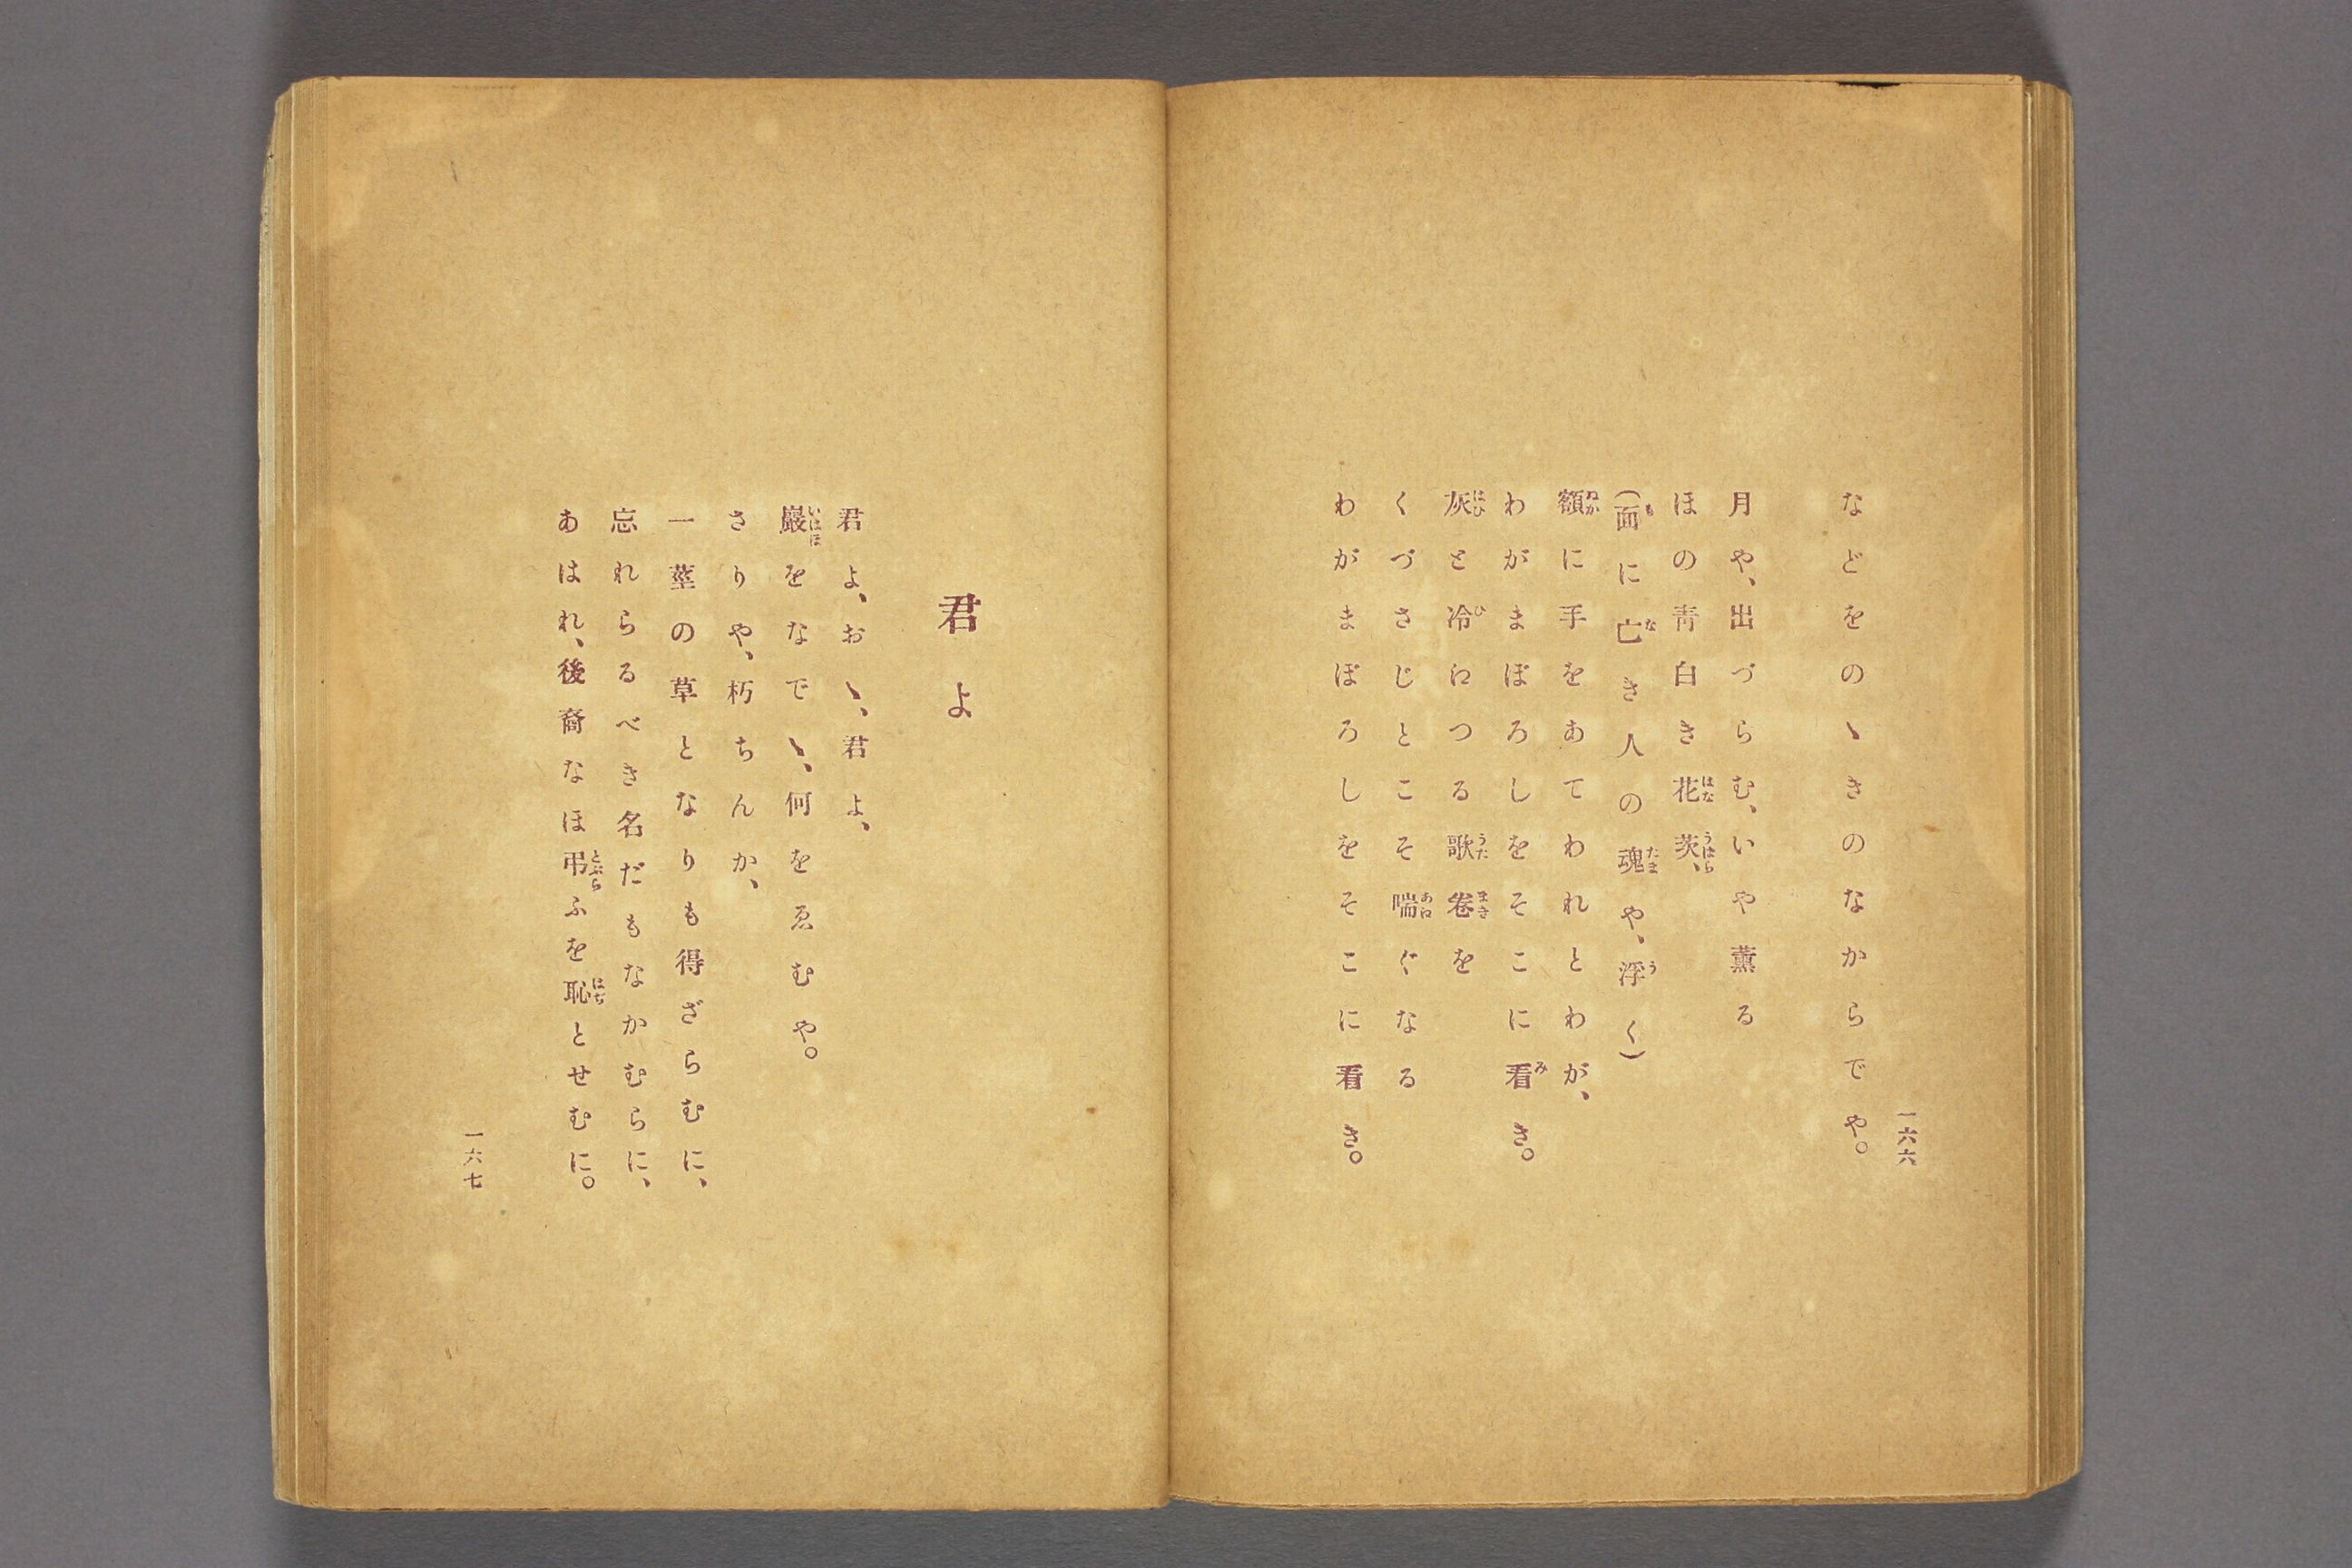 一六六
などをのゝきのなからでや。
月や、出づらむ、いや薫る
ほの青白き花茨、
(面に亡き人の魂や、浮く)
額に手をあてわれとわが、
わがまぼろしをそこに看き。
灰と冷ねつる歌卷を
くづさじとこそ喘ぐなる
わがまぼろしをそこに看き。
君よ
君よ、おゝ、君よ、
巖をなでゝ、何をゑむや。
さりや、朽ちんか、
一莖の草となりも得ざらむに、
忘れらるべき名だもなかむらに、
あはれ、後裔なほ弔ふを恥とせむに。
一六七